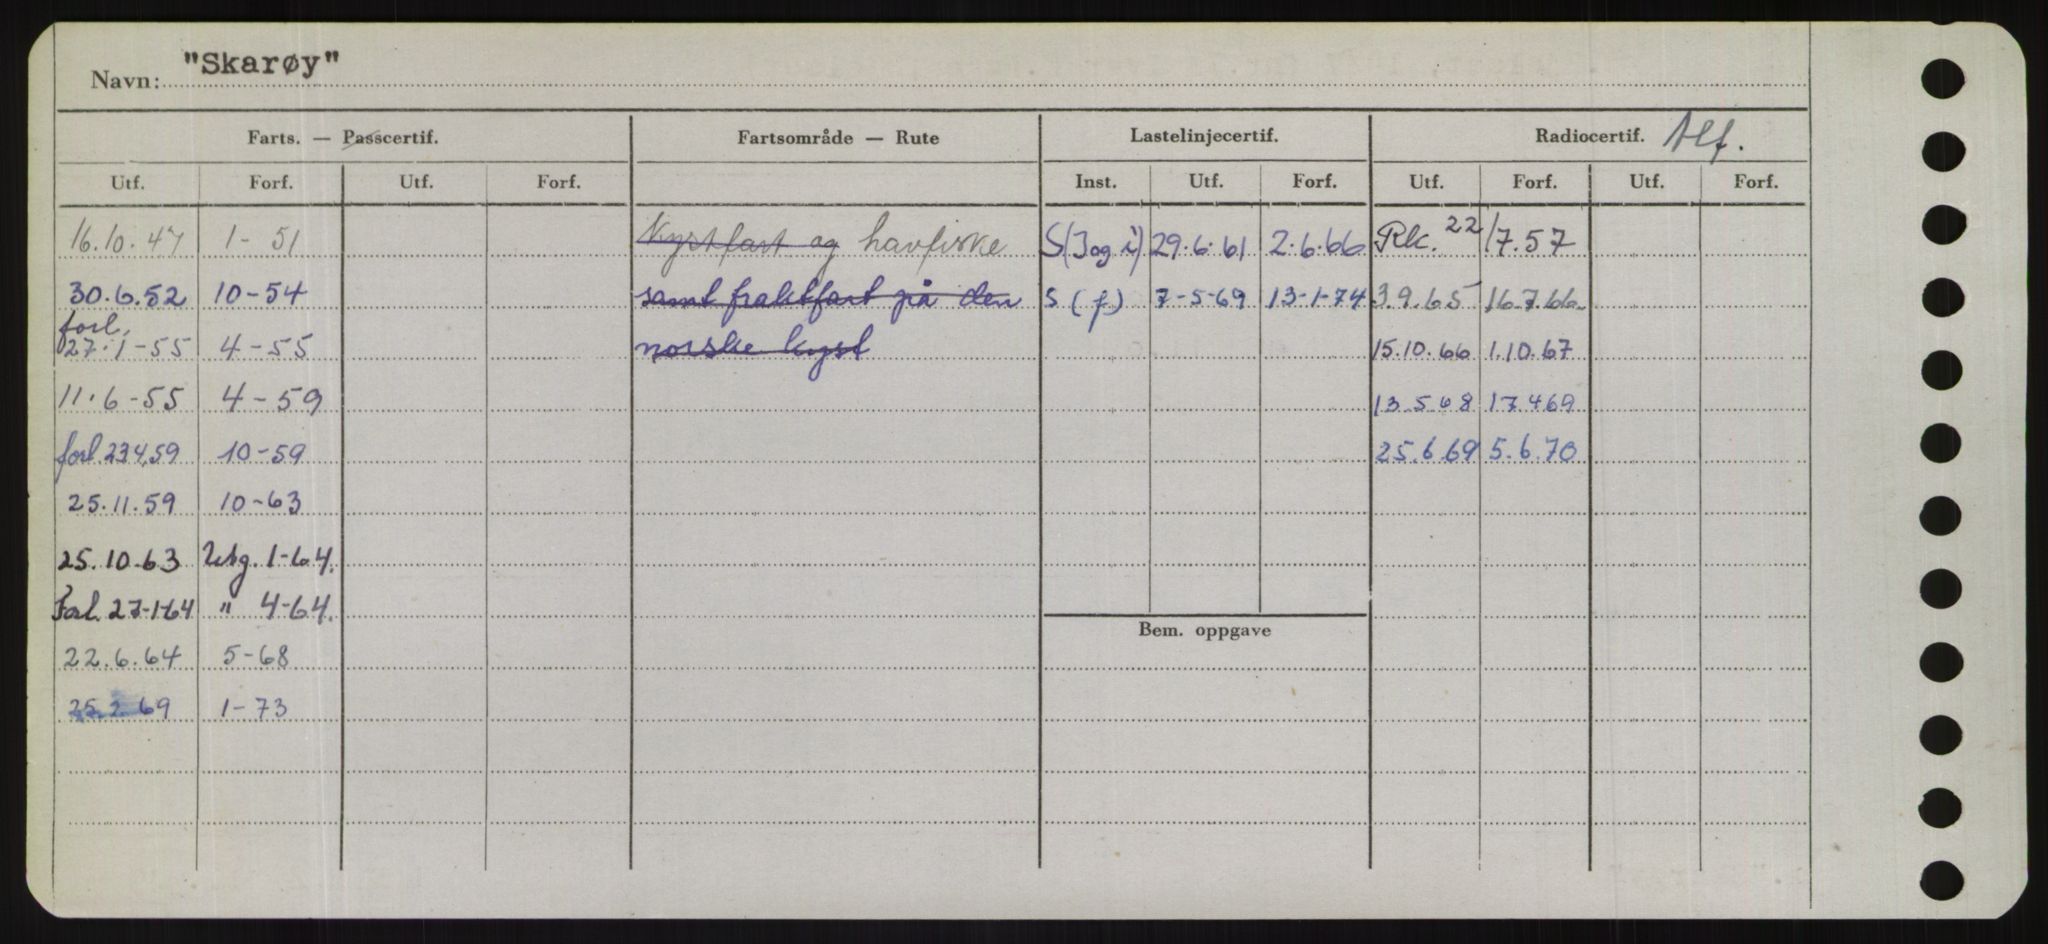 Navn: "Skarøy"
Farts. — Passcertif. Fartsområde — Rute Lastelinjecertif. Radiocertif. Tlf.
Utf. Forf. Utf. Forf. Inst. Utf. Forf. Utf. Forf. Utf. Forf.
16.10.47 1-51 Kystfart og havfiske S(J og i) 29.6.61 2.6.66 Rk. 22/7.57
30.6.52 10-54 samt fraktfart på den S (f) 7-5-69 13-1-74 3.9.65 16.7.66
forl.
27.1-55 4-55 norske kyst 15.10.66 1.10.67
11.6-55 4-59 13.5.68 17.4.69
forl. 23.4.59 10-59 25.6.69 5.6.70
25.11.59 10-63
25.10.63 Utg. 1-64.
Forl. 27-1-64 " 4-64.
Bem. oppgave
22.6.64 5-68
25.2.69 1-73